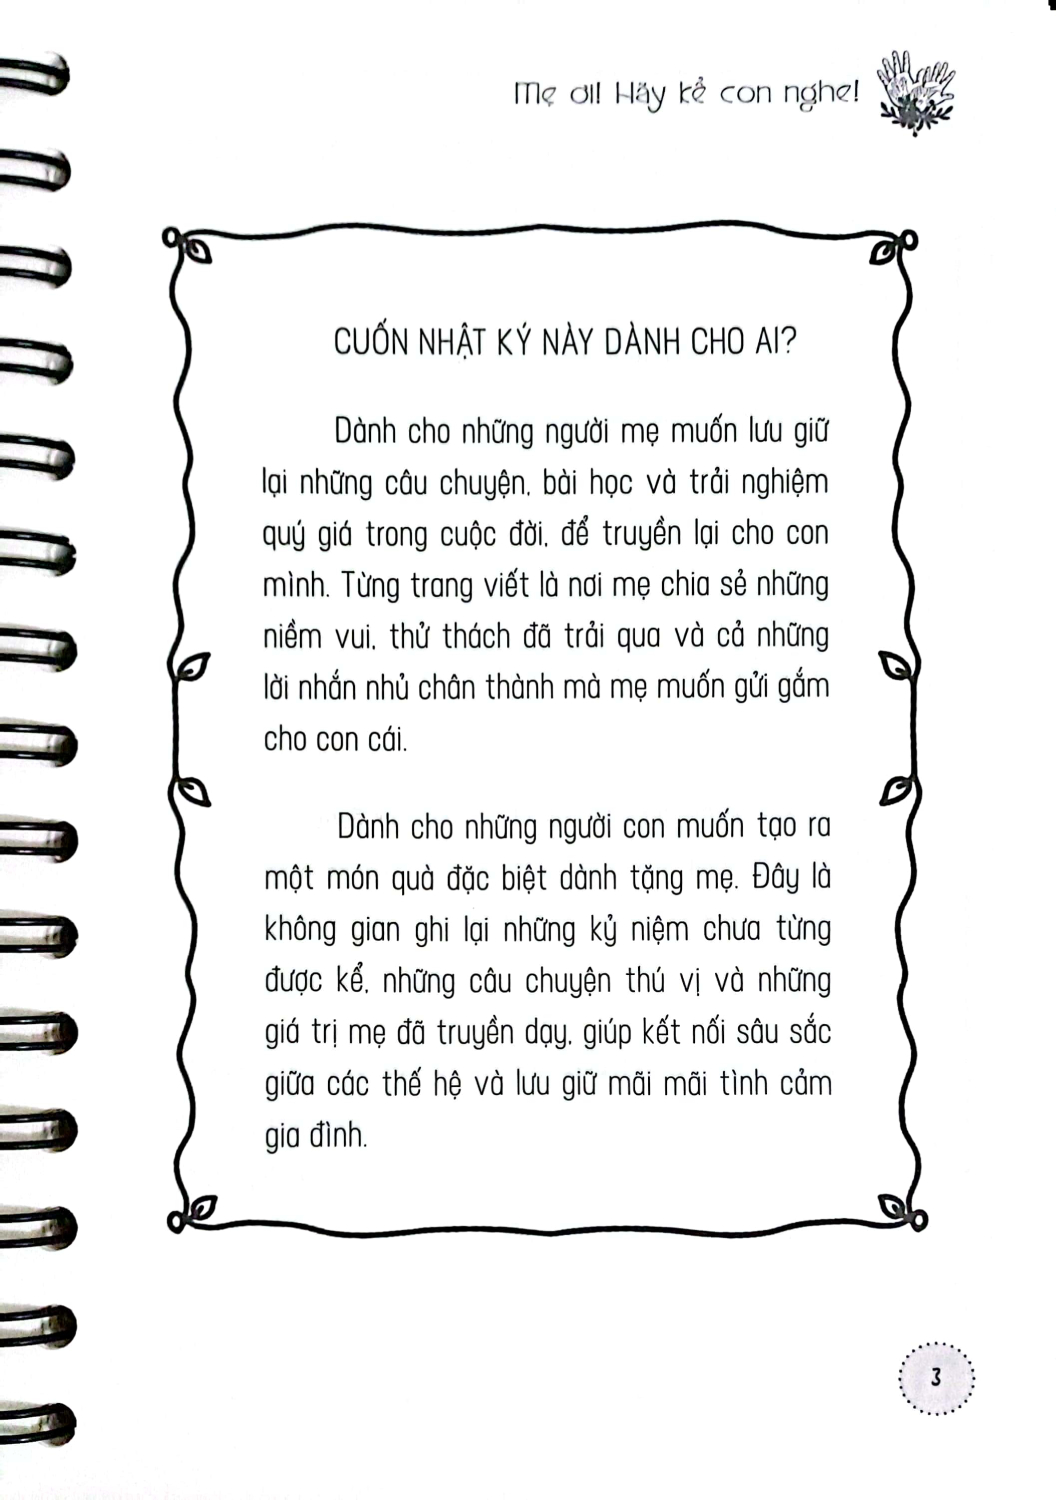 Mẹ ơi! Hãy kể con nghe!
CUỐN NHẬT KÝ NÀY DÀNH CHO AI?
Dành cho những người mẹ muốn lưu giữ
lại những câu chuyện, bài học và trải nghiệm
quý giá trong cuộc đời, để truyền lại cho con
mình. Từng trang viết là nơi mẹ chia sẻ những
niềm vui, thử thách đã trải qua và cả những
lời nhắn nhủ chân thành mà mẹ muốn gửi gắm
cho con cái.
Dành cho những người con muốn tạo ra
một món quà đặc biệt dành tặng mẹ. Đây là
không gian ghi lại những kỷ niệm chưa từng
được kể, những câu chuyện thú vị và những
giá trị mẹ đã truyền dạy, giúp kết nối sâu sắc
giữa các thế hệ và lưu giữ mãi mãi tình cảm
gia đình.
3